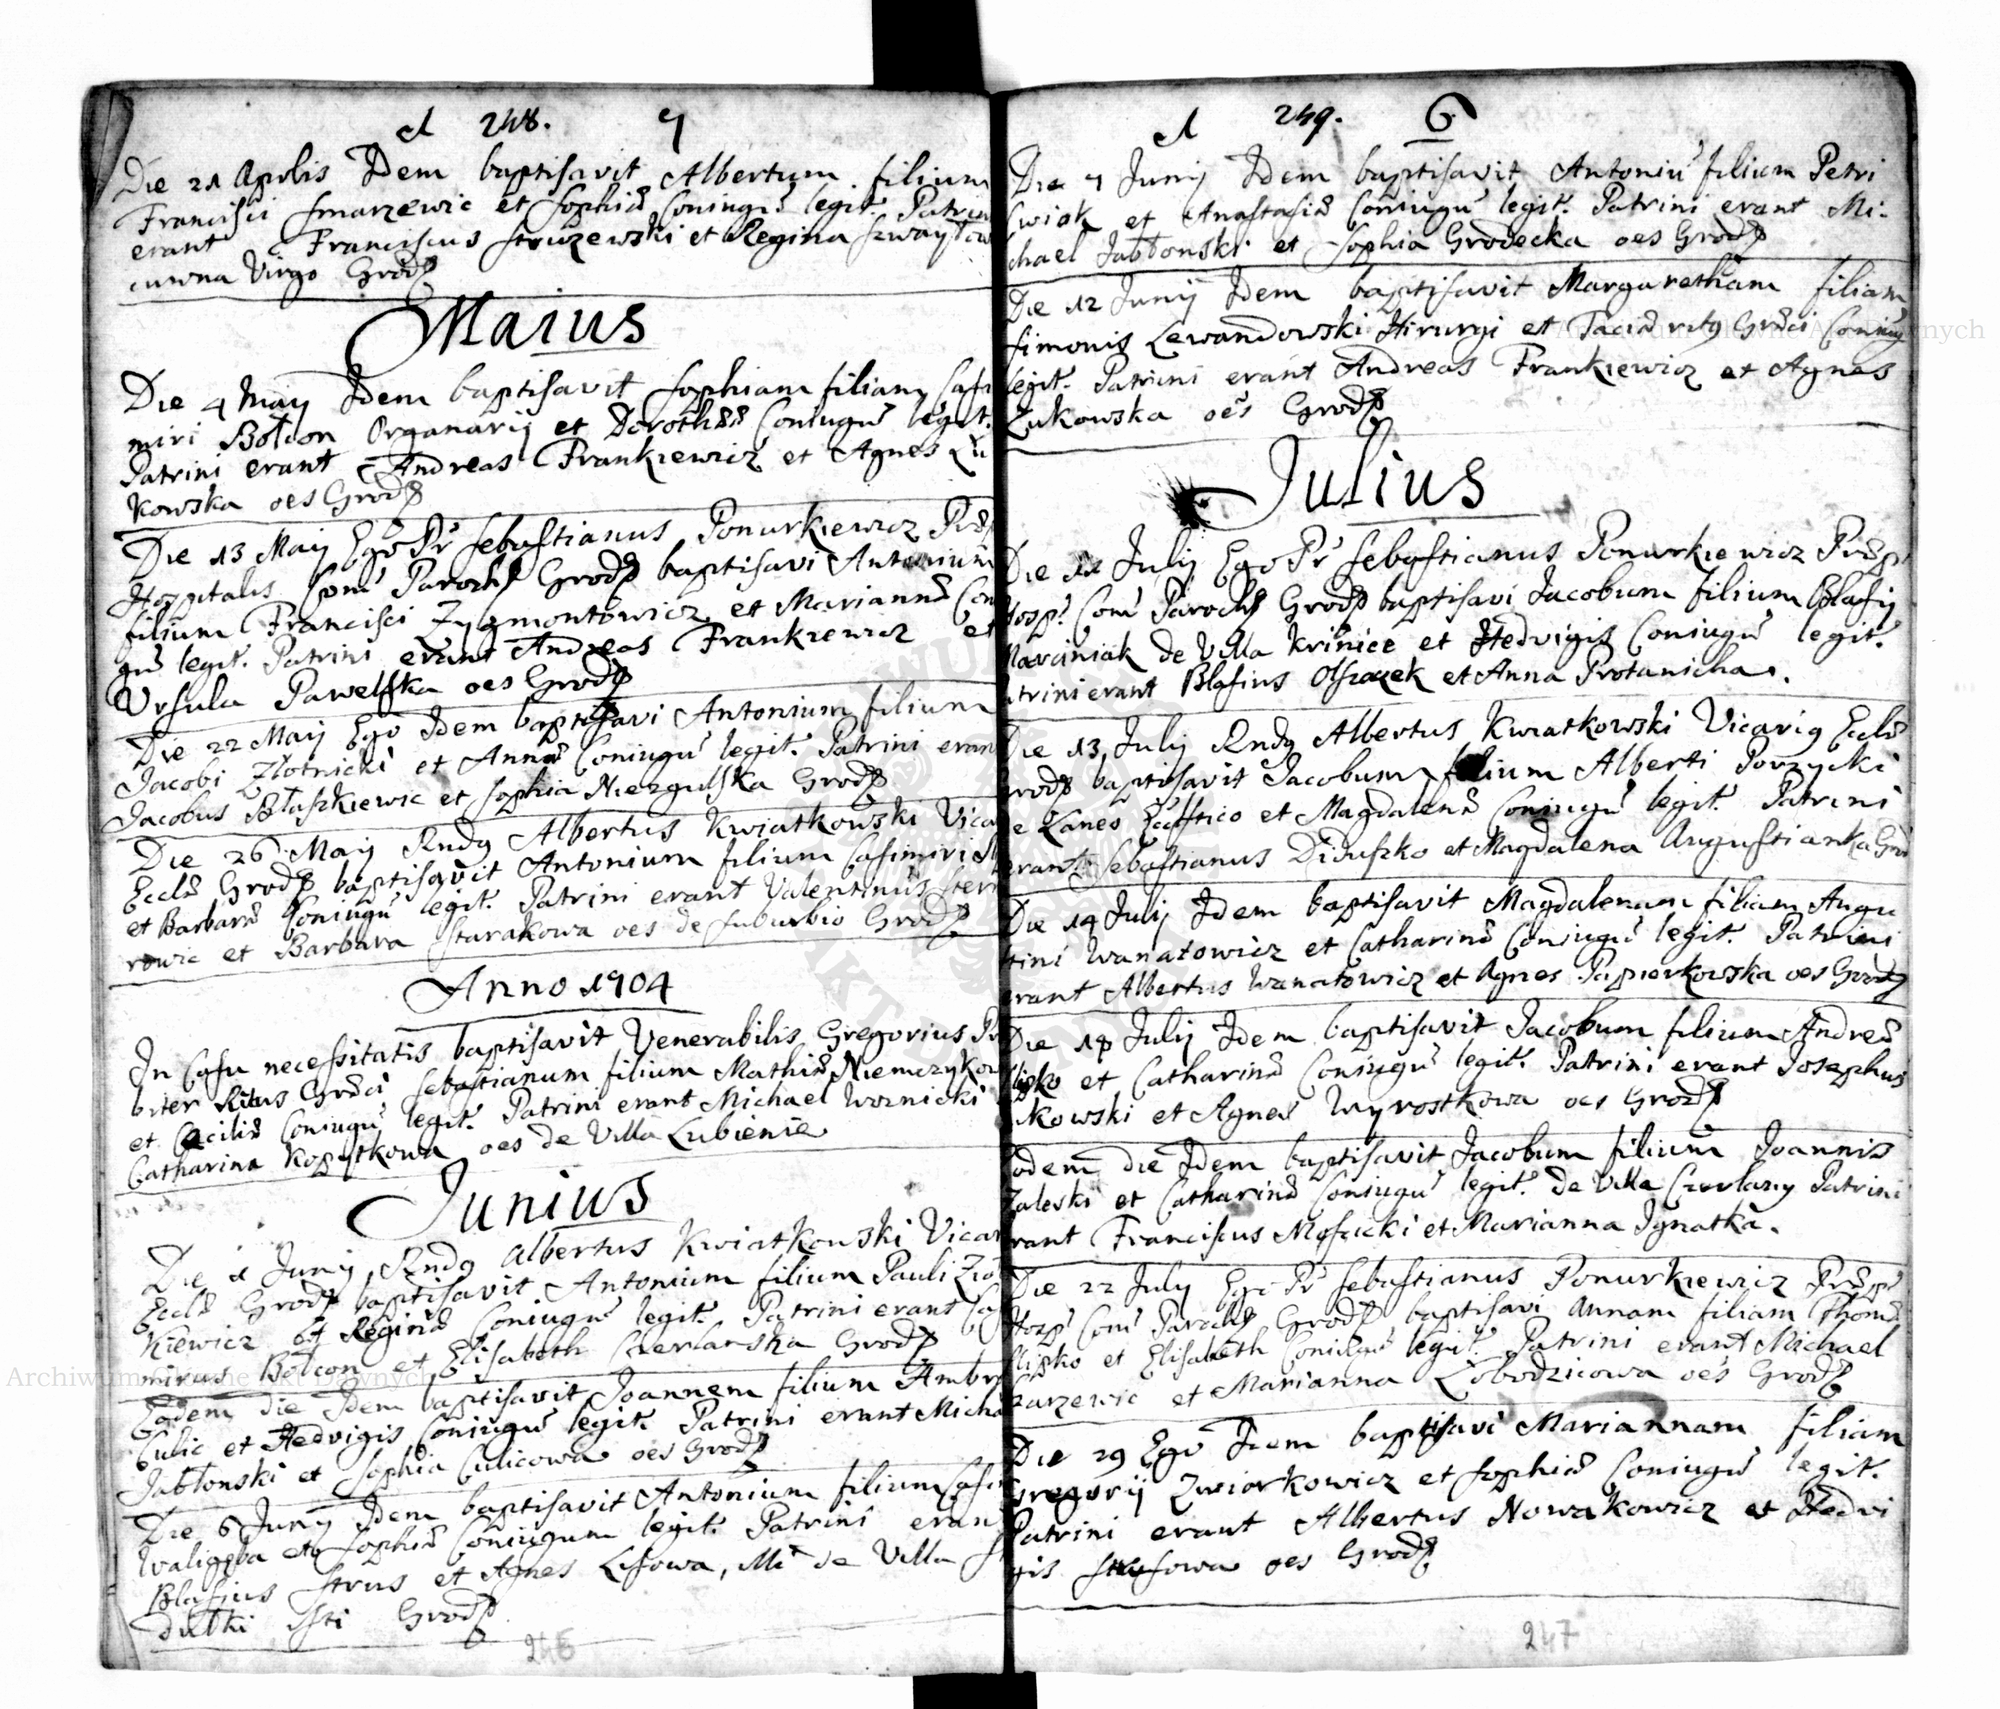 A 248. 7
Die 21 Aprlis Idem baptisavit Albertum filium
Francisci Smarzewic et Sophiæ Coniugũ legit. Patrini
erant Franciscus Struzewski et Regina Szwaytow
cuwna Virgo Grod
Maius
Die 4 Maij Idem baptisavit Sophiam filiam Casi
miri Bołdon Organarij et Dorotheæ Coniugũ legit.
Patrini erant Andreas Frankiewicz et Agnes Zu
kowska oẽs Grod
Die 13 Maij Ego Pr Sebastianus Ponurkiewicz Præp
Hospitalis Com Paroch Grod baptisavi Antonium
filium Francisci Zygmontowicz et Mariannæ Con
gũ legit. Patrini erant Andreas Frankiewicz et
Ursula Pawelska oes Grod
Die 22 Maij Ego Idem baptisavi Antonium filium
Jacobi Złotnicki et Annæ Coniugũ legit. Patrini erant
Jacobus Błaszkiewic et Sophia Niezgulska Grod
Die 26 Maij Rndg Albertus Kwiatkowski Vica
Eccle Grod baptisavit Antonium filium Casimiri
et Barbaræ Coniugũ legit. Patrini erant Valentinus
rowic et Barbara Starakowa oes de suburbio Grod
Anno 1704
In Casu necessitatis baptisavit Venerabilis Gregorius Pr
biter Ritus Græci Sebastianum filium Mathiæ Niemczykow
et Cæciliæ Coniugũ legit. Patrini erant Michael Woznicki
Catharina Kopystkowa oes de Villa Lubienie
Junius
Die 1 Junij Rndg Albertus Kwiatkowski Vicar
Eccle Grod baptisavit Antonium filium Pauli Zio
kiewicz et Reginæ Coniugũ legit. Patrini erant Casi
mirus Bołdon et Elisabeth Czerlanska Grod
Eadem die Idem baptisavit Joannem filium Ambro
Culic et Hedvigis Coniugũ legit. Patrini erant Micha
Jabłonski et Sophia Culicowa oes Grod
Die 6 Junij Idem baptisavit Antonium filium Casi
Waligęba et Sophiæ Coniugum legit. Patrini eran
Blasius Strus et Agnes Lisowa, de Villa
dułki isti Grod
246
A 249. 6
Die 7 Junij Idem baptisavit Antoniũ filium Petri
Cwiok et Anastasiæ Coniugũ legit. Patrini erant Mi-
chael Jabłonski et Sophia Grodecka oes Grod
Die 12 Junij Idem baptisavit Margaretham filiam
Simonis Lewandowski Hirurgi et ritg Græci Coniug
legit. Patrini erant Andreas Frankiewicz et Agnes
Zukowska oẽs Grod
Julius
Die 11 July Ego Pr Sebastianus Ponurkiewicz Præp
Hosp. Com Paroch Grod baptisavi Jacobum filium Blasij
Marciniak de Villa Krinice et Hedvigis Coniugũ legit.
atrini erant Blasius Olszacek et Anna Protanicha.
Die 13 July Rndg Albertus Kwiatkowski Vicarig Eccle
Grod baptisavit Jacobum filium Alberti Porzycki
e Laneo et Magdalenæ Coniugũ legit. Patrini
erant Sebastianus Diduszko et Magdalena Augustianka Grod
Die 14 July Idem baptisavit Magdalenam filiam Augu
stini Wanatowicz et Catharinæ Coniugũ legit. Patrini
erant Albertus Wanatowicz et Agnes Papierkowska oes Grod
Die 18 July Idem baptisavit Jacobum filium Andreæ
Slipko et Catharinæ Coniugũ legit. Patrini erant Josephus
kowski et Agnes Wyrostkowa oes Grod
odem die Idem baptisavit Jacobum filium Joannis
Zaleski et Catharinæ Coniugũ legit. de Villa Czerlany Patrini
rant Franciscus Moscicki et Marianna Ignatka.
Die 22 July Ego Pr Sebastianus Ponurkiewicz Præp
Hosp Com Paroch Grod baptisavi Annam filiam Thomæ
Slipko et Elisabeth Coniugũ legit. Patrini erant Michael
arzewic et Marianna Łobodzicowa oes Grod
Die 29 Ego Idem baptisavi Mariannam filiam
Gregorij Zwiorkowicz et Sophiæ Coniugũ legit.
Patrini erant Albertus Nowakowicz et Hedvi
gis Strusowa oes Grod
247